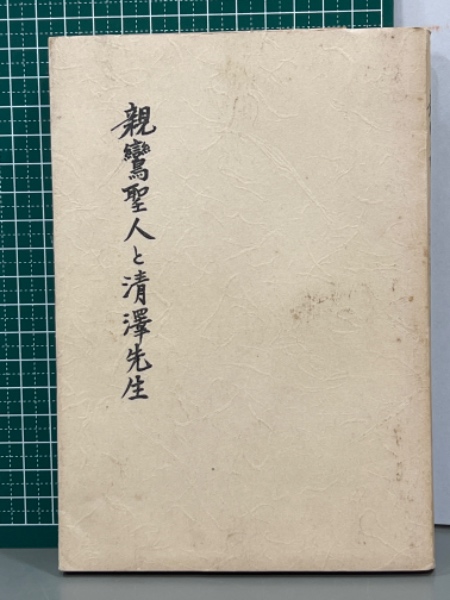 親鸞聖人と清澤先生